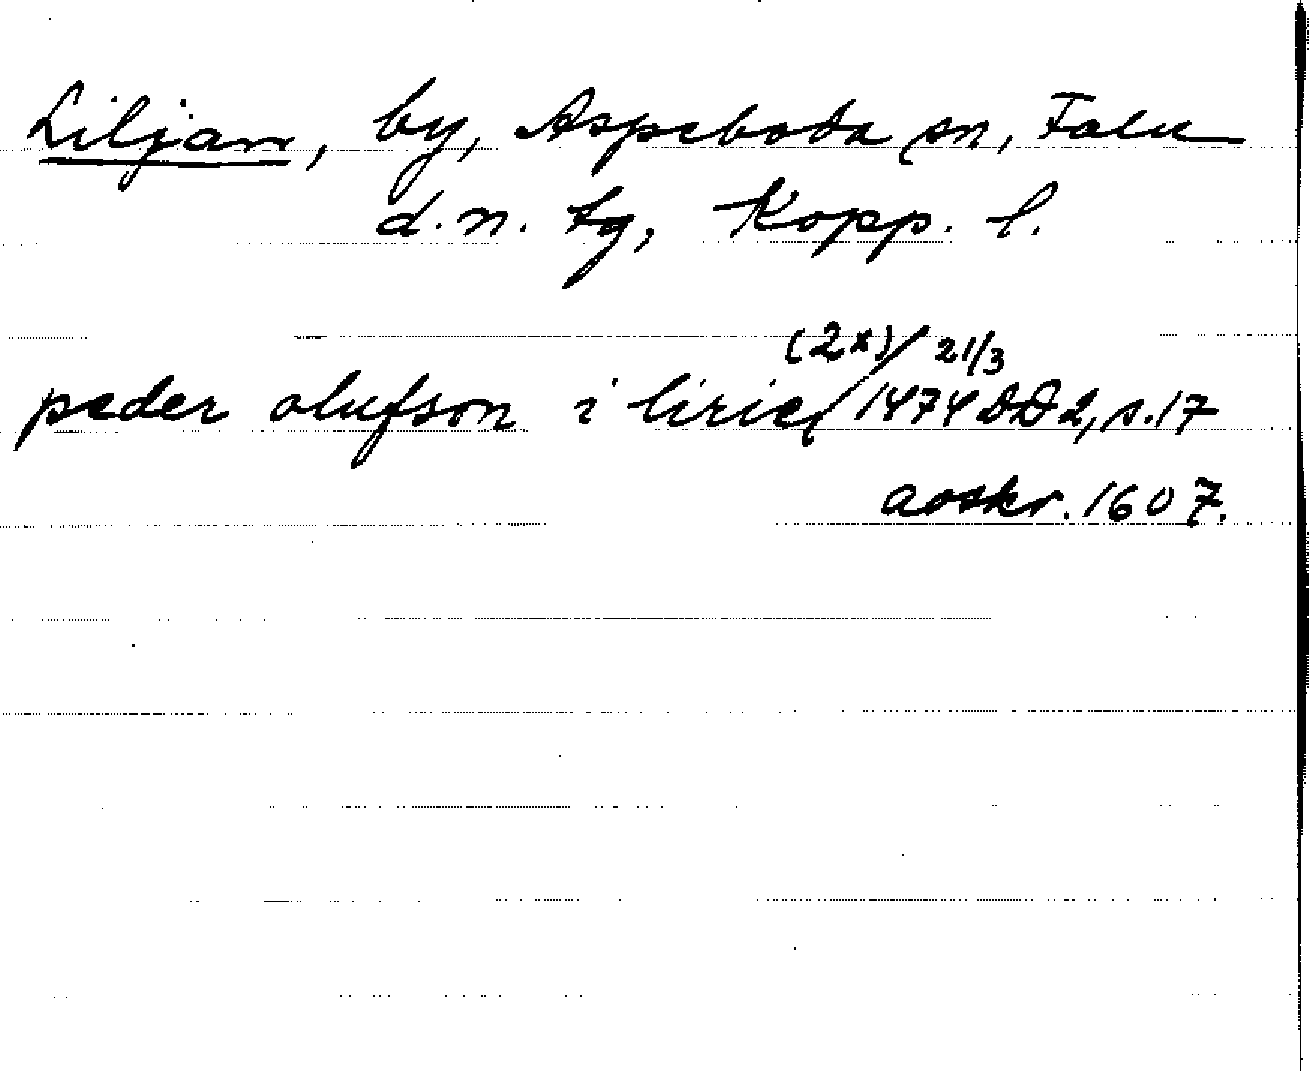 Liljan, by, Aspeboda sn, Falu
d.n. tg, Kopp. l.
(2x) 21/3
peder olufson i lirie 1474 DD 2, s. 17
avskr. 1607.